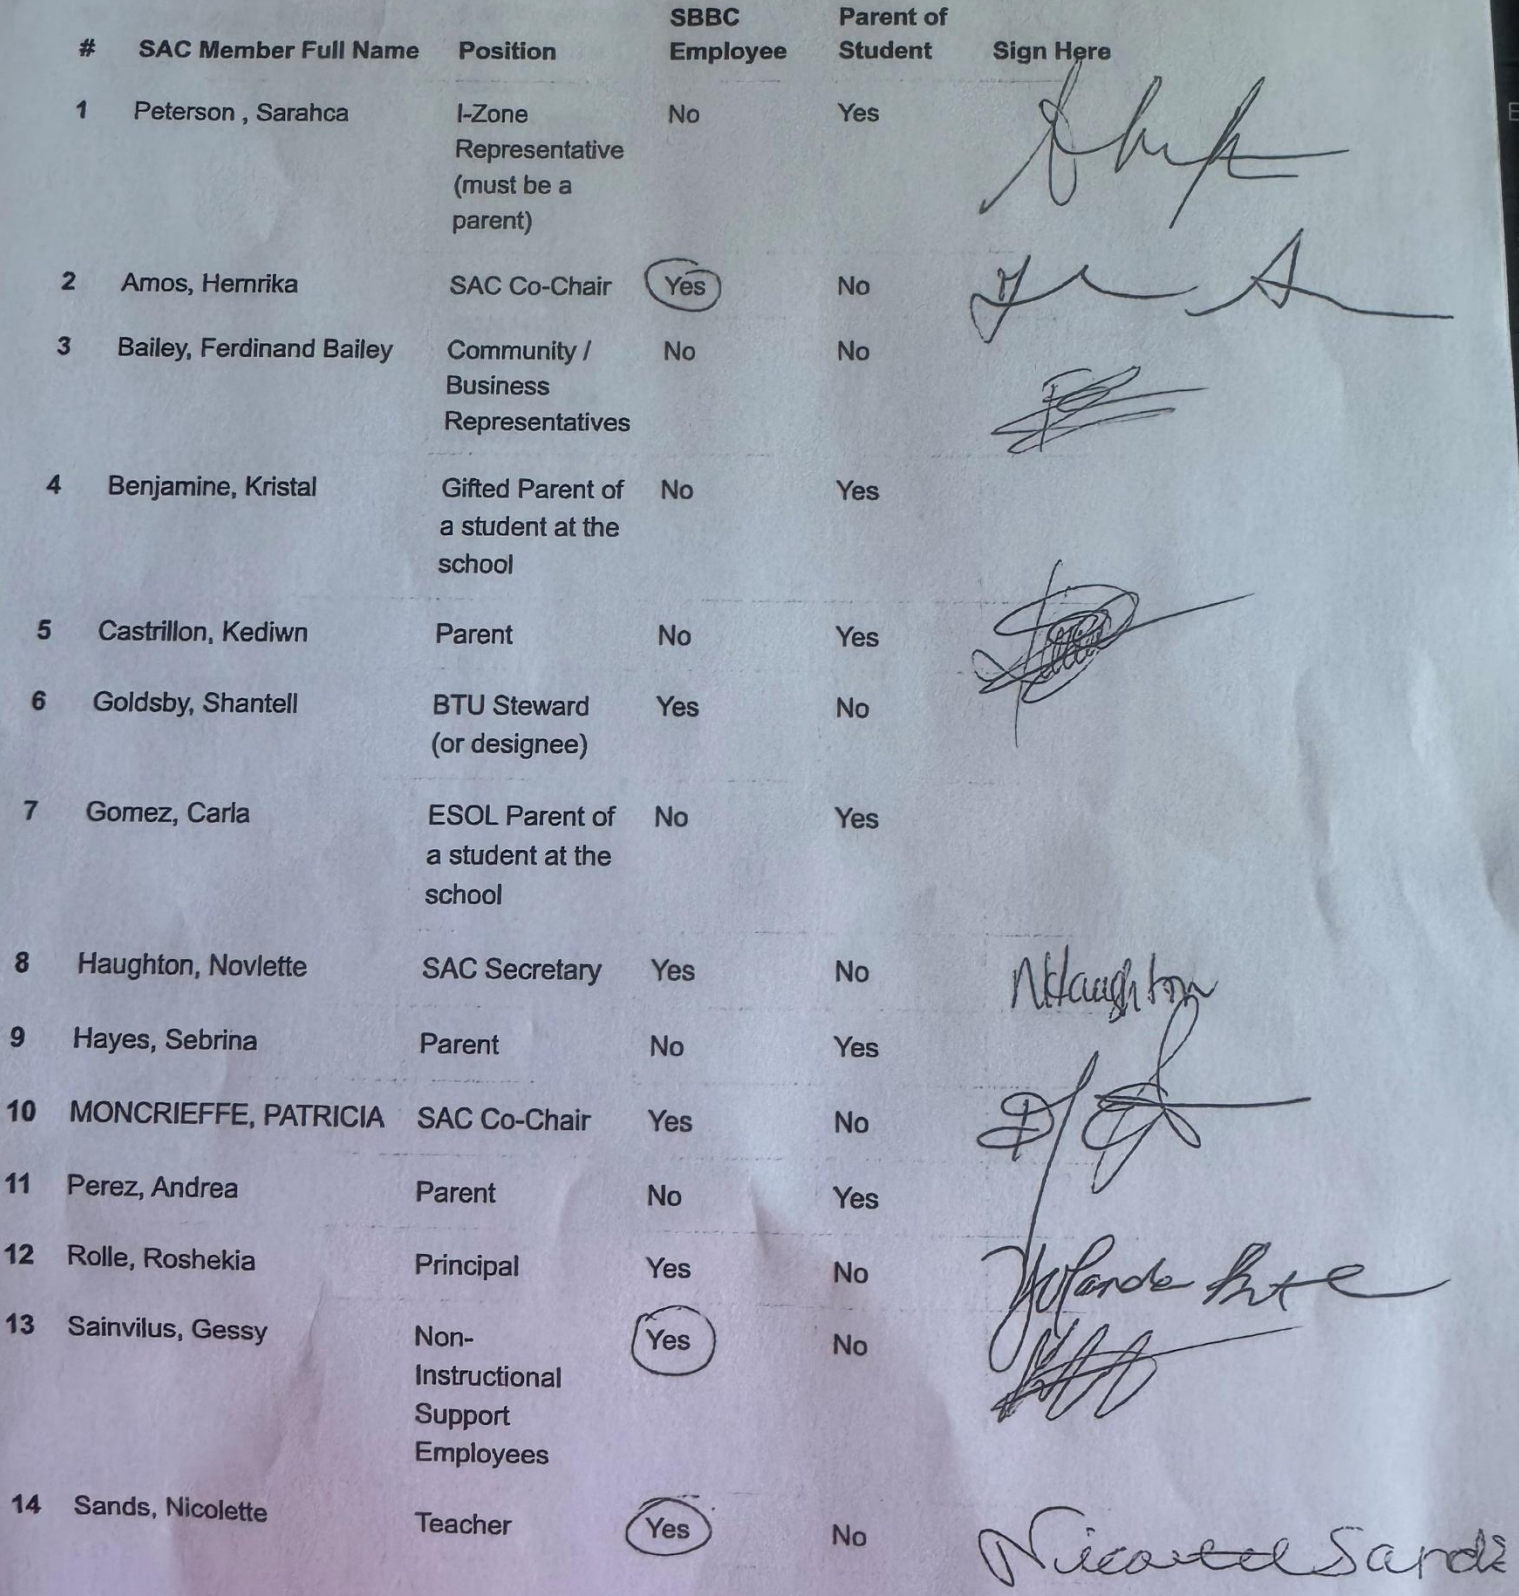 # SAC Member Full Name Position SBBC Employee Parent of Student Sign Here
1 Peterson , Sarahca I-Zone No Yes
Representative
(must be a
parent)
2 Amos, Hernrika SAC Co-Chair Yes No
3 Bailey, Ferdinand Bailey Community / No No
Business
Representatives
4 Benjamine, Kristal Gifted Parent of No Yes
a student at the
school
5 Castrillon, Kediwn Parent No Yes
6 Goldsby, Shantell BTU Steward Yes No
(or designee)
7 Gomez, Carla ESOL Parent of No Yes
a student at the
school
8 Haughton, Novlette SAC Secretary Yes No NHaughton
9 Hayes, Sebrina Parent No Yes
10 MONCRIEFFE, PATRICIA SAC Co-Chair Yes No
11 Perez, Andrea Parent No Yes
12 Rolle, Roshekia Principal Yes No Yolanda
13 Sainvilus, Gessy Non- Yes No
Instructional
Support
Employees
14 Sands, Nicolette Teacher Yes No Sands